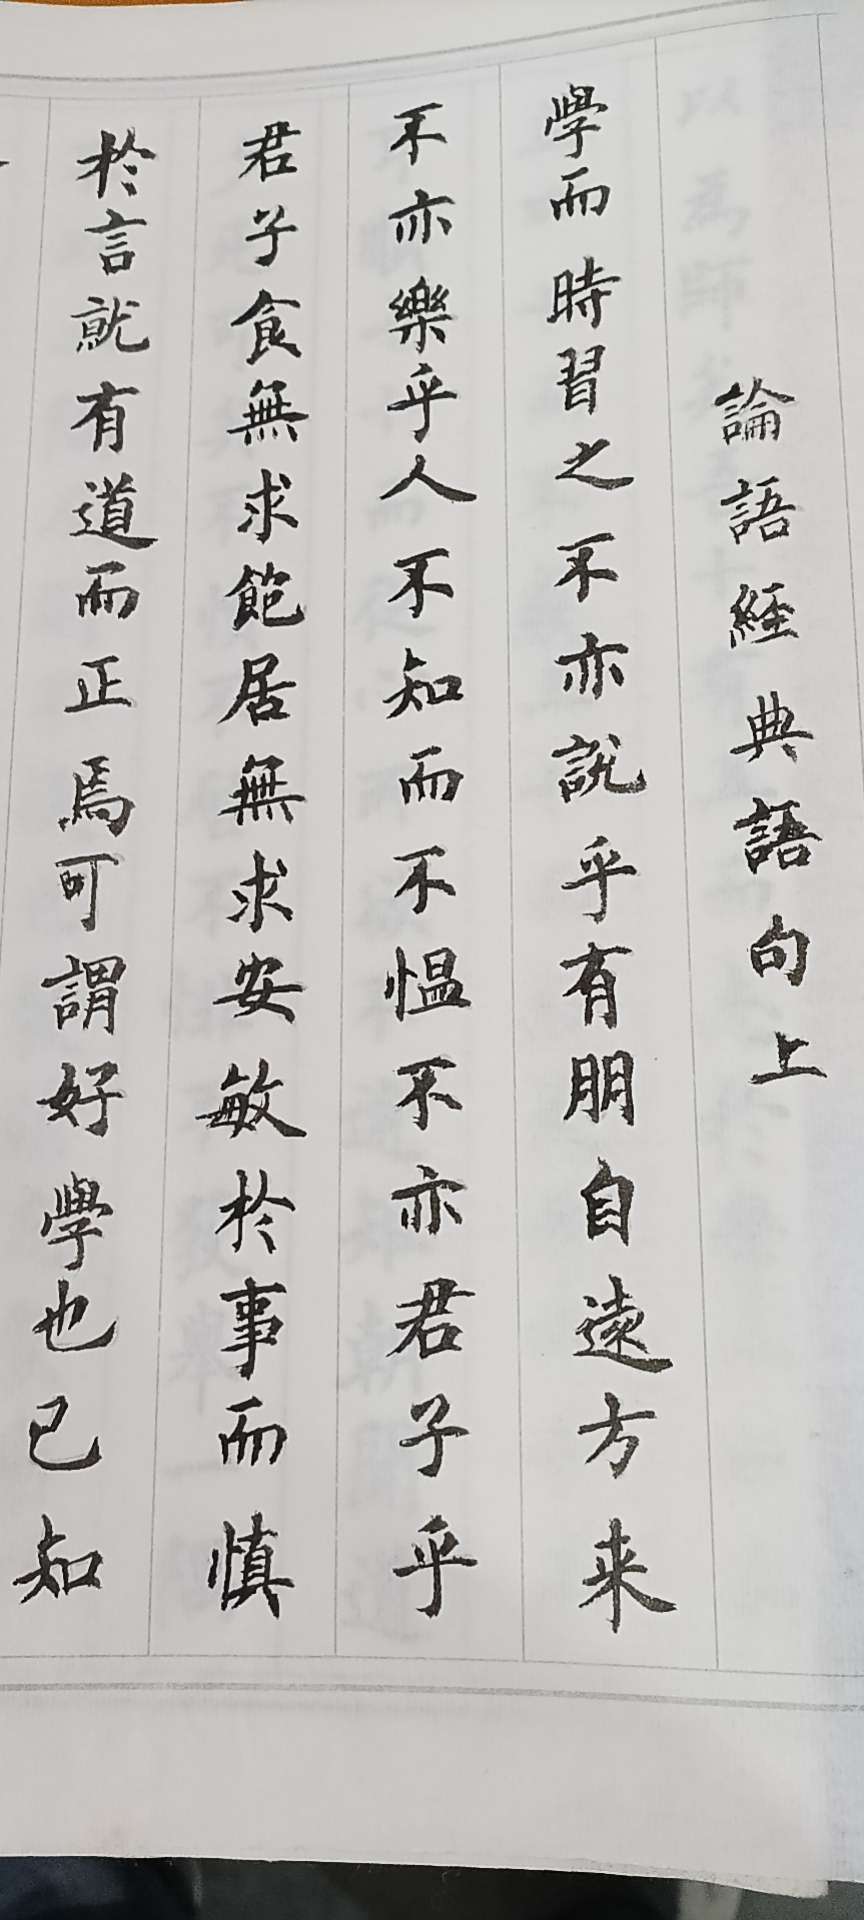 論語經典語句上
學而時習之不亦說乎有朋自遠方来
不亦樂乎人不知而不愠不亦君子乎
君子食無求飽居無求安敏於事而慎
於言就有道而正焉可謂好學也已知